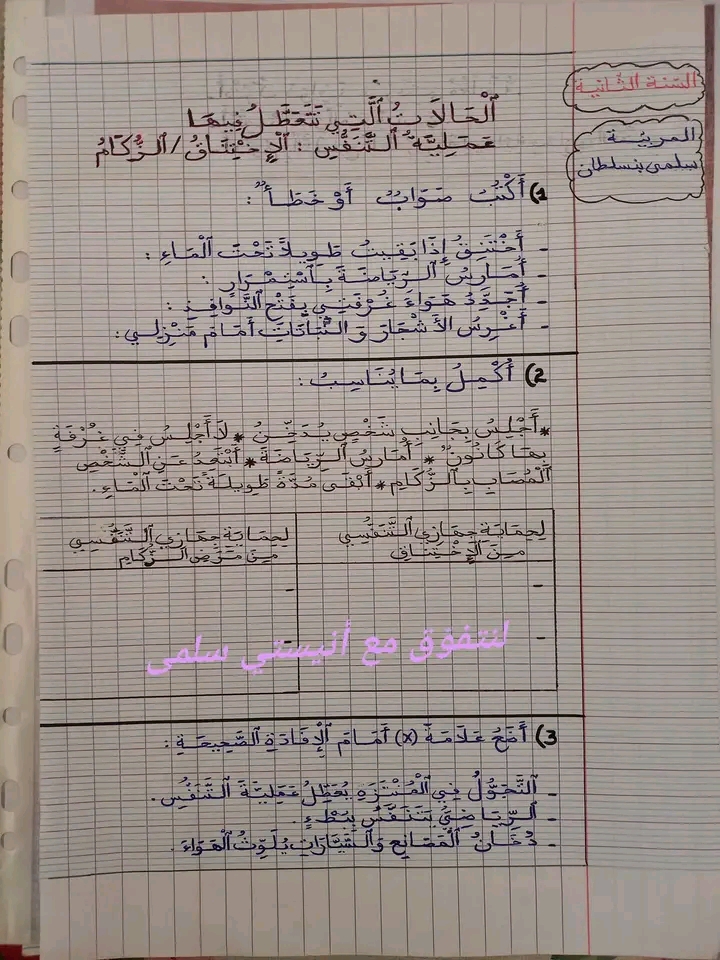 السّنة الثّانية
المربيّة
سلمى بنسلطان
اَلْحَالَاتُ الَّتِي تَتَعَطَّلُ فِيهَا
عَمَلِيَّةُ التَّنَفُّسِ : اَلْإِخْتِنَاقُ / الزُّكَامُ
1) أَكْتُبُ صَوَابٌ أَوْ خَطَأٌ :
- أَخْتَنِقُ إِذَا بَقِيتُ طَوِيلًا تَحْتَ الْمَاءِ :
- أُمَارِسُ الرِّيَاضَةَ بِاسْتِمْرَارٍ :
- أُجَدِّدُ هَوَاءَ غُرْفَتِي بِفَتْحِ النَّوَافِذِ :
- أَغْرِسُ الأَشْجَارَ وَ النَّبَاتَاتِ أَمَامَ مَنْزِلِي :
2) أُكْمِلُ بِمَا يُنَاسِبُ :
* أَجْلِسُ بِجَانِبِ شَخْصٍ يُدَخِّنُ * لَا أَجْلِسُ فِي غُرْفَةٍ
بِهَا كَانُونٌ * أُمَارِسُ الرِّيَاضَةَ * أَبْتَعِدُ عَنِ الشَّخْصِ
الْمُصَابِ بِالزُّكَامِ * أَبْقَى مُدَّةً طَوِيلَةً تَحْتَ الْمَاءِ .
لِحِمَايَةِ جِهَازِي التَّنَفُّسِي
مِنَ الْإِخْتِنَاقِ
لِحِمَايَةِ جِهَازِي التَّنَفُّسِي
مِنْ مَرَضِ الزُّكَامِ
-
-
-
-
لنتفوّق مع أنيستي سلمى
3) أَضَعُ عَلَامَةَ (x) أَمَامَ الْإِفَادَةِ الصَّحِيحَةِ :
- اَلتَّجَوُّلُ فِي الْمُنْتَزَهِ يُعَطِّلُ عَمَلِيَّةَ التَّنَفُّسِ .
- اَلرِّيَاضِيُّ يَتَنَفَّسُ بِبُطْءٍ .
- دُخَانُ الْمَصَانِعِ وَالسَّيَّارَاتِ يُلَوِّثُ الْهَوَاءَ .